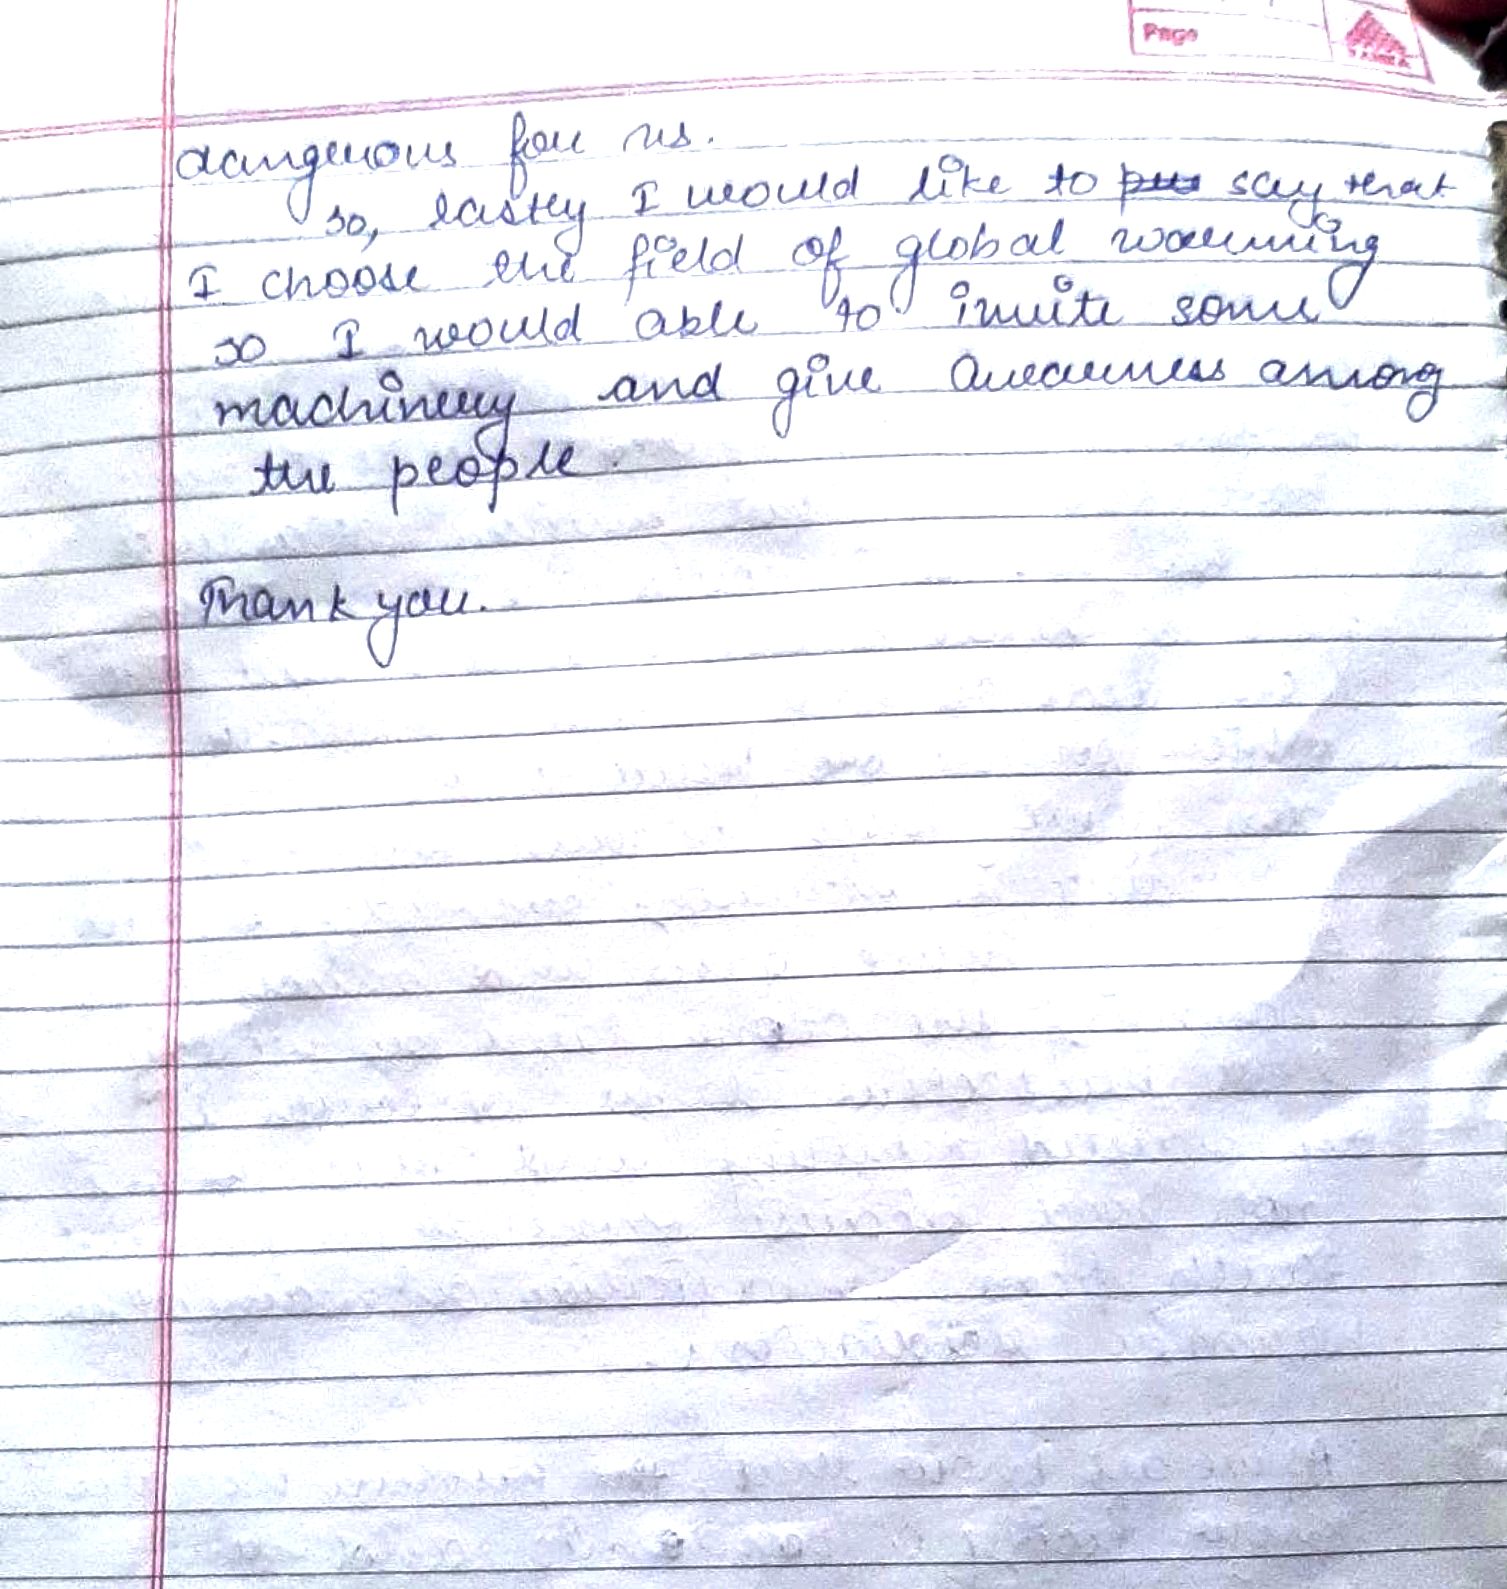 Page
dangerous for us.
so, lastly I would like to say that
I choose the field of global warming
so I would able to invite some
machinery and give awareness among
the people.
Thank you.